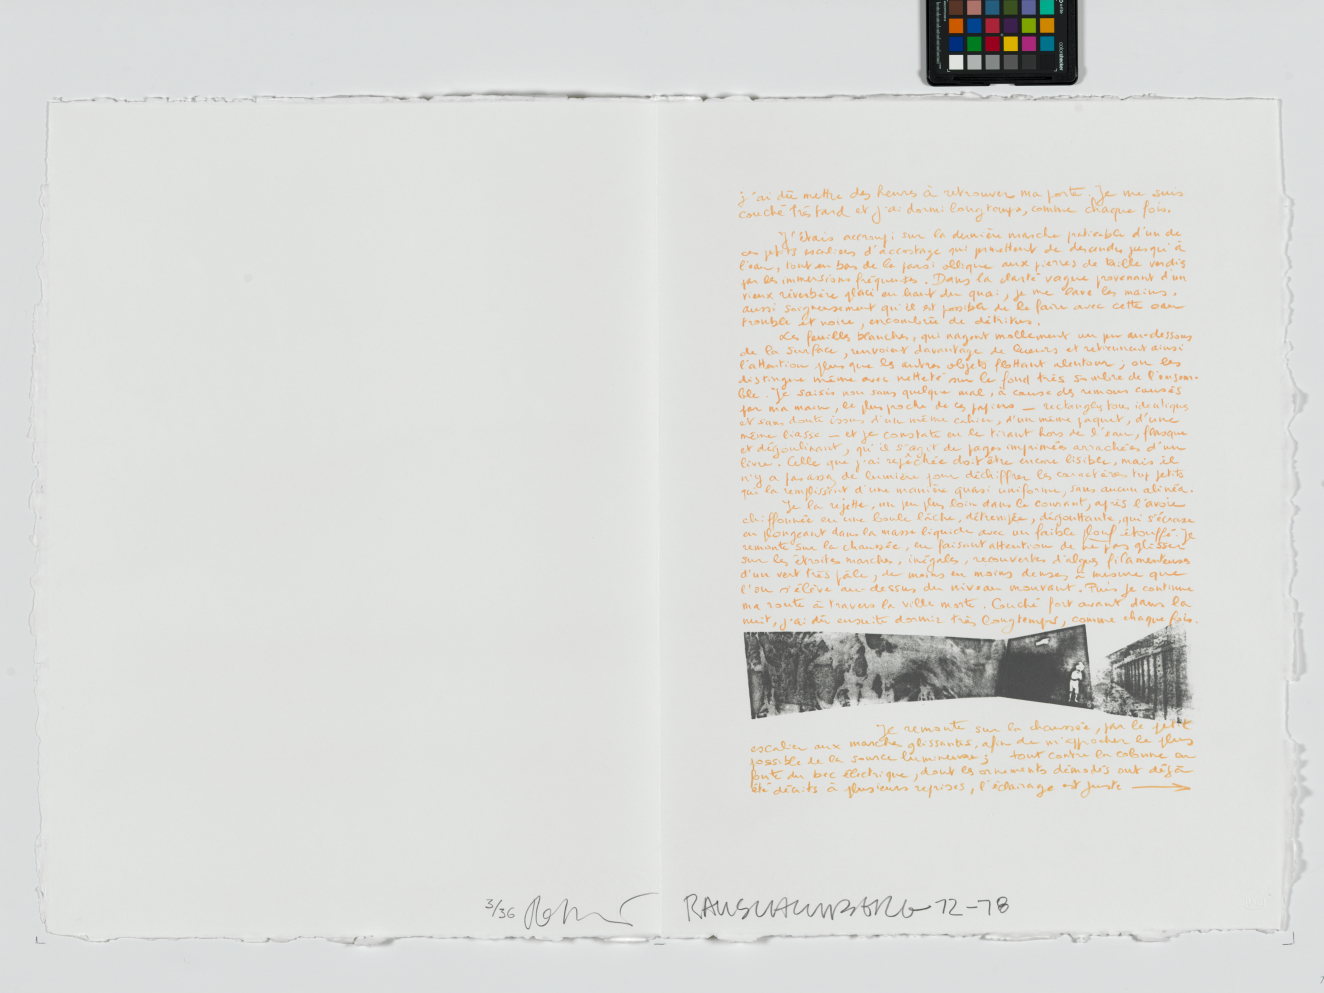 j'ai dû mettre des heures à retrouver ma porte. Je me suis
couché très tard et j'ai dormi longtemps, comme chaque fois.
J'étais accroupi sur la dernière marche praticable d'un de
ces petits escaliers d'accostage qui permettent de descendre jusqu'à
l'eau, tout en bas de la paroi oblique aux pierres de taille verdies
par les immersions fréquentes. Dans la clarté vague provenant d'un
vieux réverbère placé en haut du quai, je me lave les mains,
aussi soigneusement qu'il est possible de le faire avec cette eau
trouble et noire, encombrée de détritus.
Les feuilles blanches, qui nagent mollement un peu au-dessous
de la surface, renvoient davantage de lueurs et retiennent ainsi
l'attention plus que les autres objets flottant alentour ; on les
distingue même avec netteté sur le fond très sombre de l'ensem-
ble. Je saisis non sans quelque mal, à cause des remous causés
par ma main, le plus proche de ces papiers — rectangles tous identiques
et sans doute issus d'un même cahier, d'un même paquet, d'une
même liasse — et je constate en le tirant hors de l'eau, flasque
et dégoulinant, qu'il s'agit de pages imprimées arrachées d'un
livre. Celle que j'ai repêchée doit être encore lisible, mais il
n'y a pas assez de lumière pour déchiffrer les caractères trop petits
qui la remplissent d'une manière quasi uniforme, sans aucun alinéa.
Je la rejette, un peu plus loin dans le courant, après l'avoir
chiffonnée en une boule lâche, détrempée, dégouttante, qui s'écrase
en plongeant dans la masse liquide avec un faible plouf étouffé. Je
remonte sur la chaussée, en faisant attention de ne pas glisser
sur les étroites marches, inégales, recouvertes d'algues filamenteuses
d'un vert très pâle, de moins en moins denses à mesure que
l'on s'élève au-dessus du niveau mouvant. Puis je continue
ma route à travers la ville morte. Couché fort avant dans la
nuit, j'ai dû ensuite dormir très longtemps, comme chaque fois.
Je remonte sur la chaussée, par le petit
escalier aux marche glissantes, afin de m'approcher le plus
possible de la source lumineuse ; tout contre la colonne en
fonte du bec électrique, dont les ornements démodés ont déjà
été décrits à plusieurs reprises, l'éclairage est juste →
3/36
RAUSCHENBERG 72-78